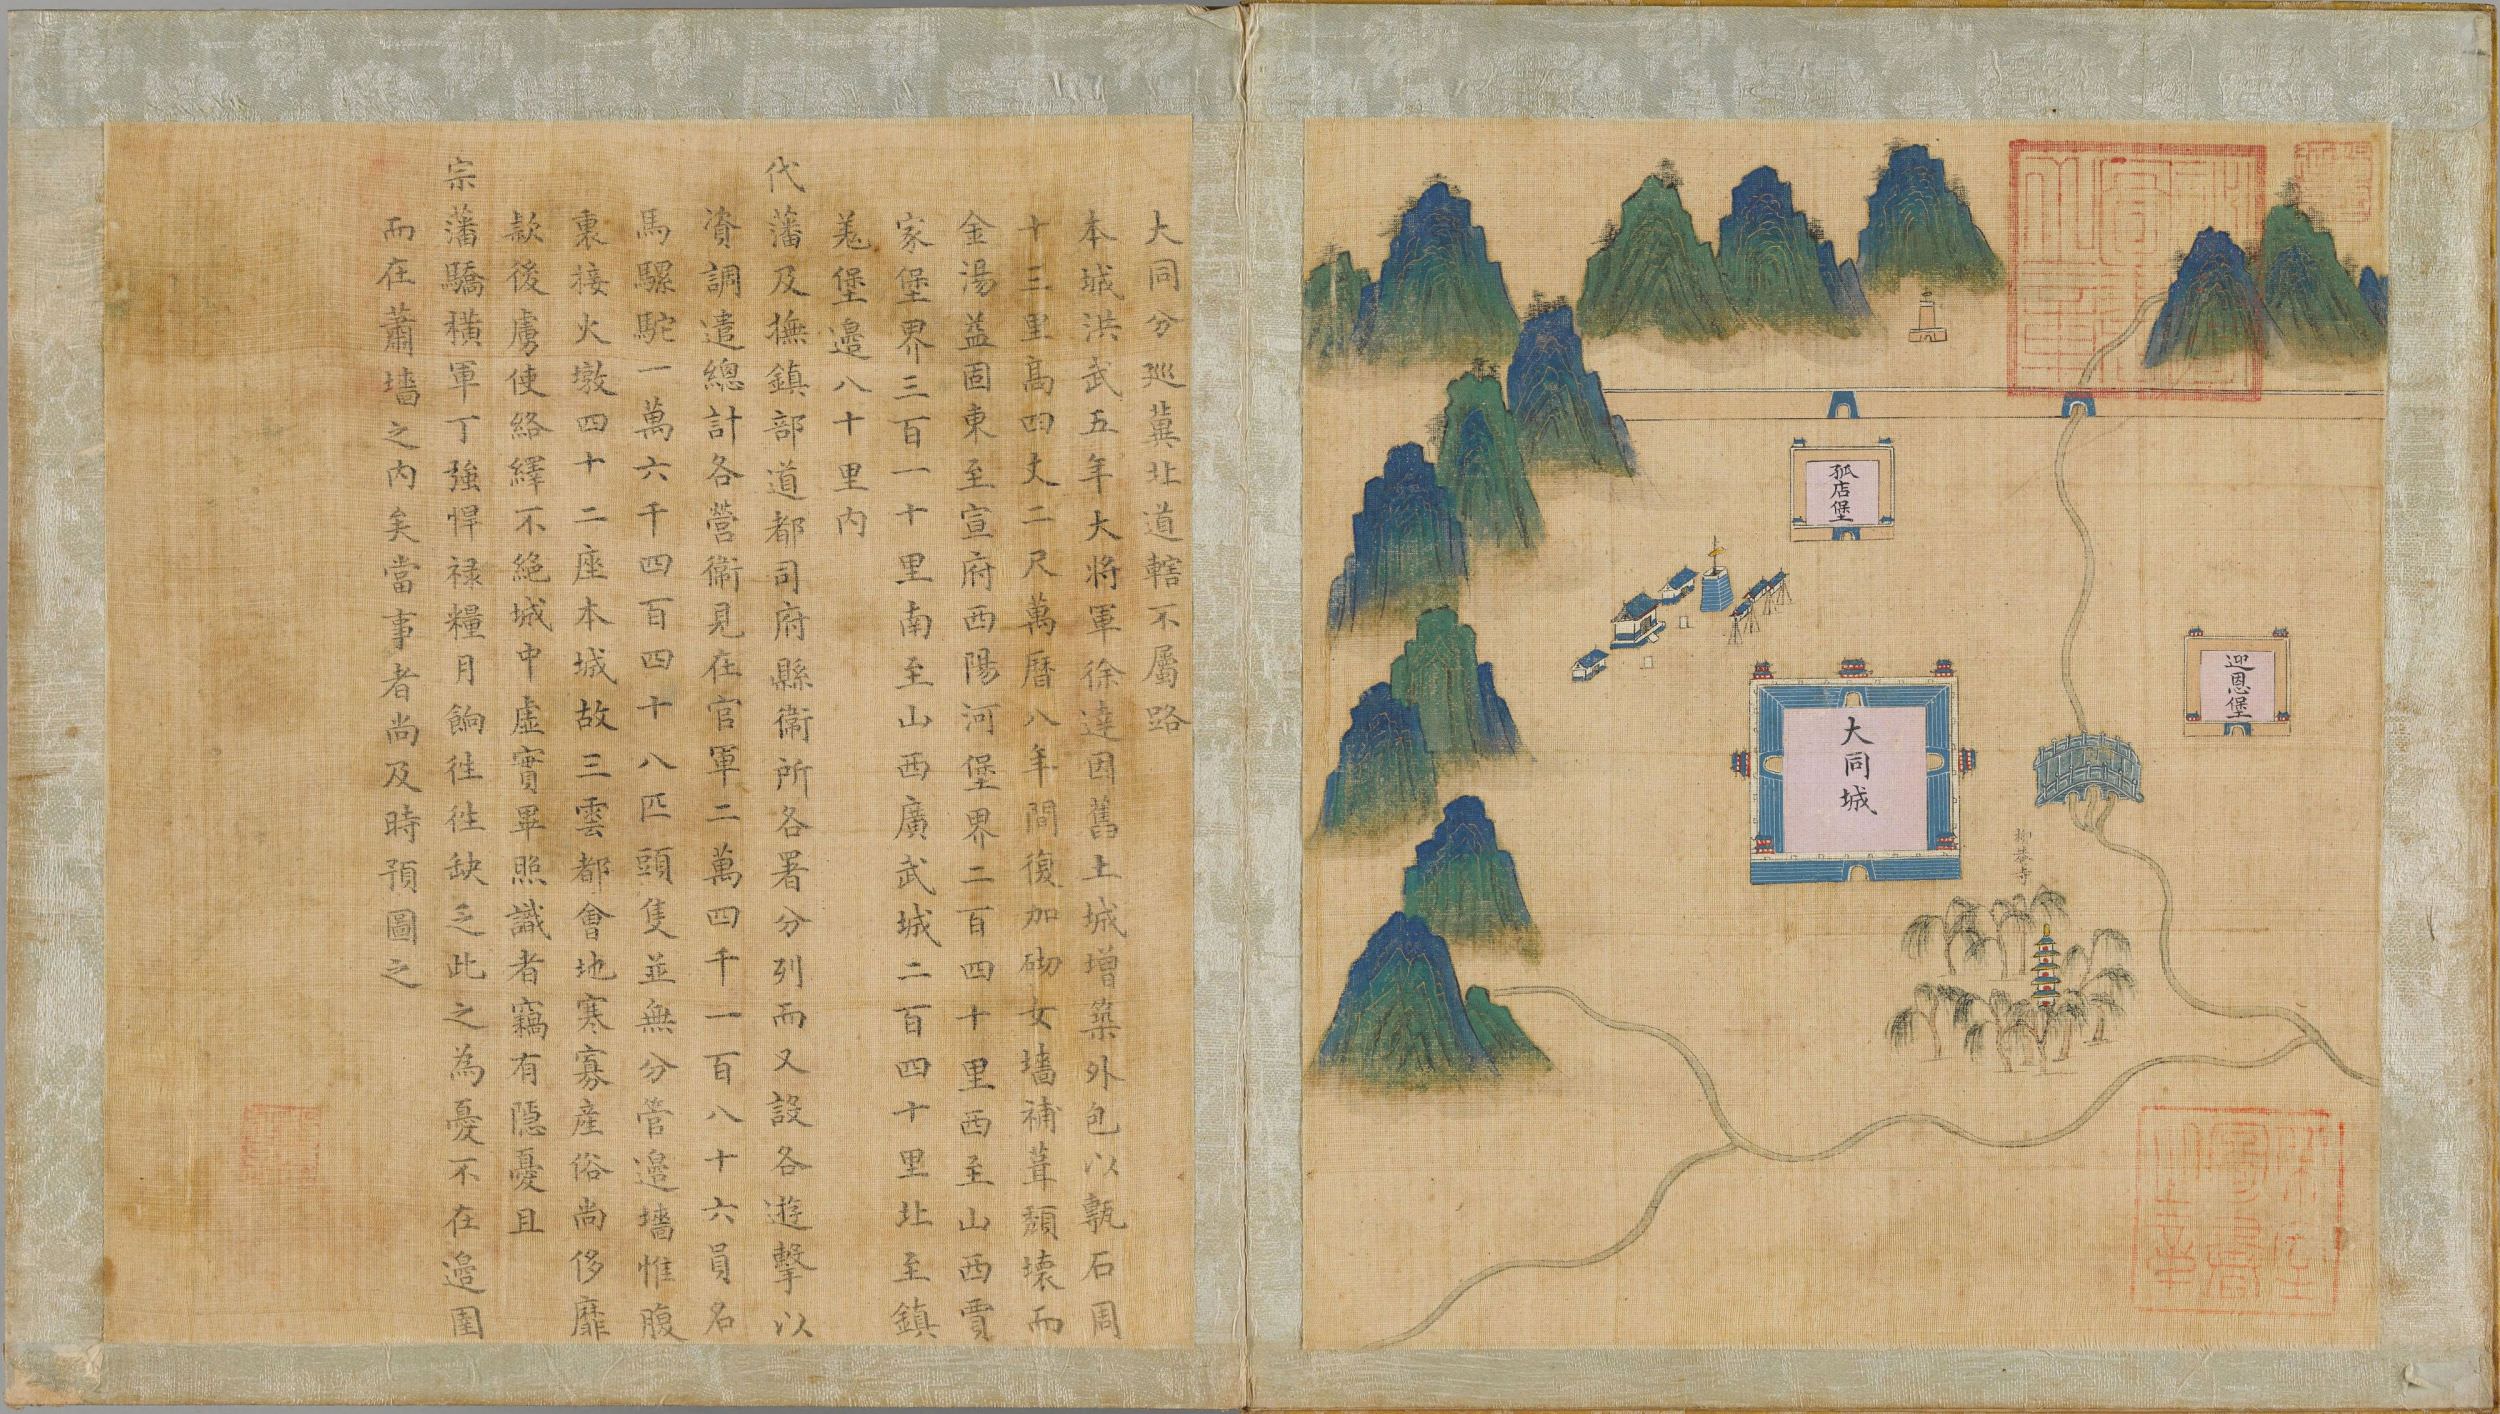 孤店堡
迎恩堡
大同城
柳巷寺
大同分巡冀北道轄不屬路
本城洪武五年大將軍徐達因舊土城增築外包以甎石周
十三里高四丈二尺萬曆八年間復加砌女墻補葺頹壞而
金湯益固東至宣府西陽河堡界二百四十里西至山西賈
家堡界三百一十里南至山西廣武城二百四十里北至鎮
羌堡邊八十里內
代藩及撫鎮部道都司府縣衞所各署分列而又設各遊擊以
資調遣總計各營衞見在官軍二萬四千一百八十六員名
馬騾駝一萬六千四百四十八匹頭隻並無分管邊墻惟腹
裏接火墩四十二座本城故三雲都會地寒寡產俗尚侈靡
款後虜使絡繹不絕城中虛實畢照識者竊有隱憂且
宗藩驕橫軍丁強悍祿糧月餉徃徃缺乏此之為憂不在邊圉
而在蕭墻之內矣當事者尚及時預圖之